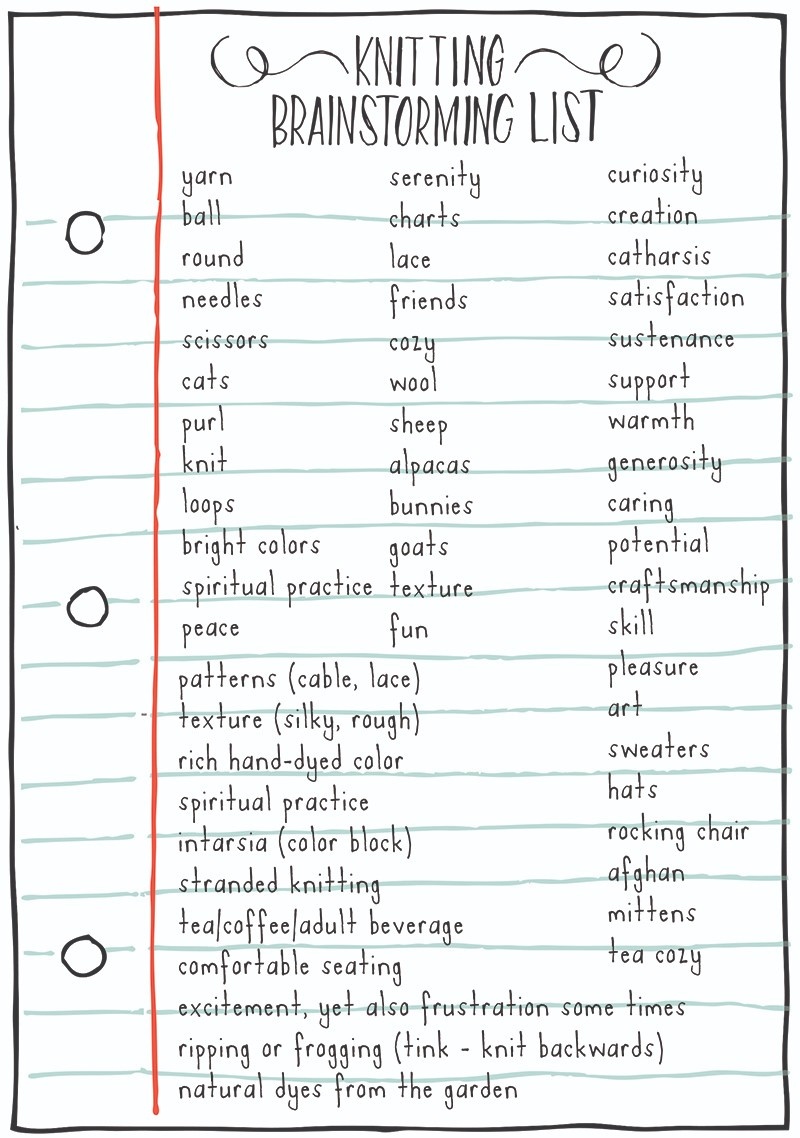 KNITTING
BRAINSTORMING LIST
yarn
ball
round
needles
scissors
cats
purl
knit
loops
bright colors
spiritual practice
peace
serenity
charts
lace
friends
cozy
wool
sheep
alpacas
bunnies
goats
texture
fun
patterns (cable, lace)
texture (silky, rough)
rich hand-dyed color
spiritual practice
intarsia (color block)
stranded knitting
tea/coffee/adult beverage
comfortable seating
excitement, yet also frustration some times
ripping or frogging (tink - knit backwards)
natural dyes from the garden
curiosity
creation
catharsis
satisfaction
sustenance
support
warmth
generosity
caring
potential
craftsmanship
skill
pleasure
art
sweaters
hats
rocking chair
afghan
mittens
tea cozy